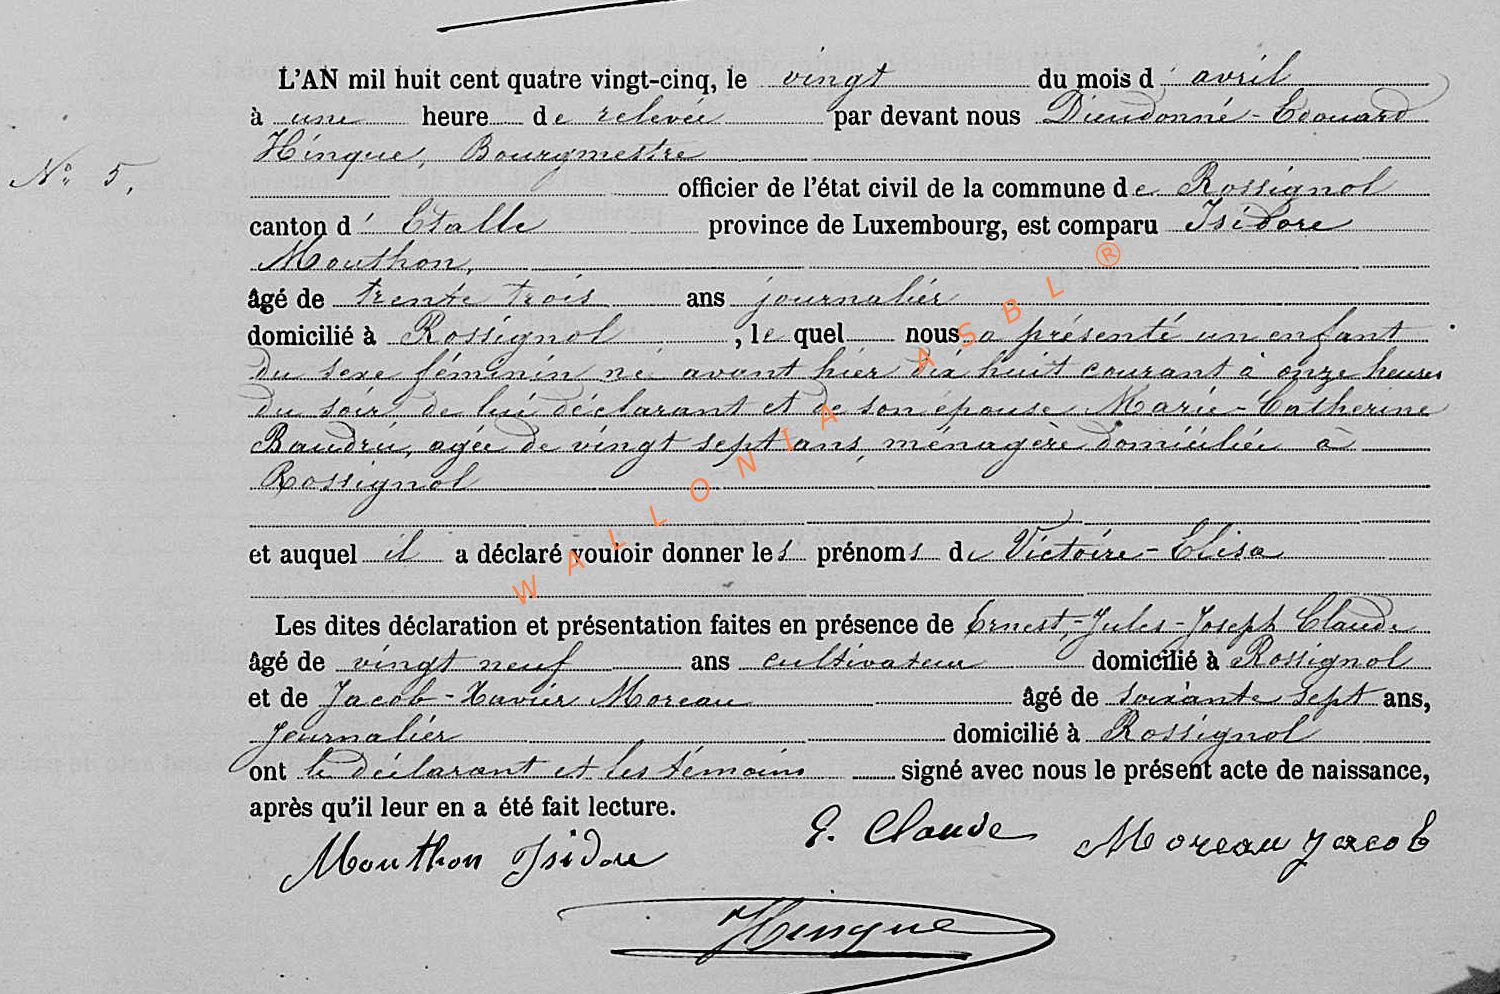 L'AN mil huit cent quatre vingt-cinq, le vingt du mois d' avril
à une heure de relevée par devant nous Dieudonné-Edouard
Hinque, Bourgmestre
N° 5.
officier de l'état civil de la commune de Rossignol
canton d' Etalle province de Luxembourg, est comparu Isidore
Mouthon,
âgé de trente trois ans journalier
domicilié à Rossignol, le quel nous a présenté un enfant
du sexe féminin né avant hier dix huit courant à onze heures
du soir de lui déclarant et de son épouse Marie-Catherine
Baudru, agée de vingt sept ans, ménagère domiciliée à
Rossignol
et auquel il a déclaré vouloir donner les prénoms de Victoire-Elisa
Les dites déclaration et présentation faites en présence de Ernest-Jules-Joseph Claude
âgé de vingt neuf ans cultivateur domicilié à Rossignol
et de Jacob-Xavier Moreau âgé de soixante sept ans,
Journalier domicilié à Rossignol
ont le déclarant et les témoins signé avec nous le présent acte de naissance,
après qu'il leur en a été fait lecture.
Mouthon Isidore E. Claude Moreau Jacob
Hinque
WALLONIA ASBL ®